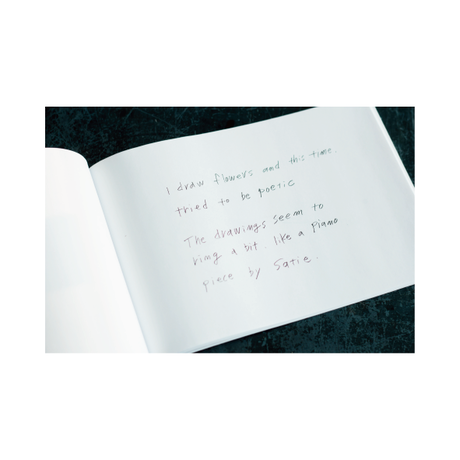 I draw flowers and this time.
tried to be poetic
The drawings seem to
ring a bit. like a piano
piece by Satie.